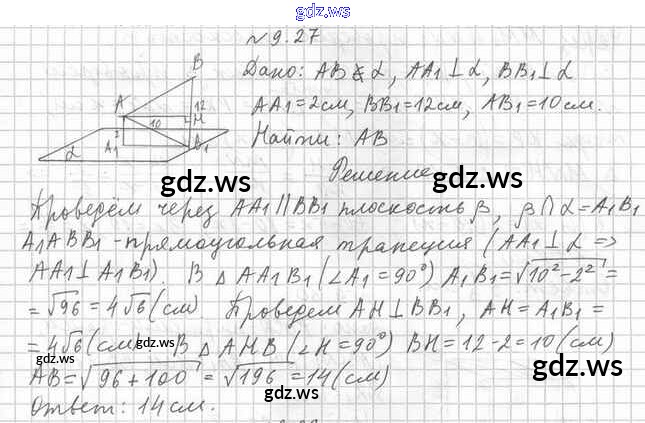 gdz.ws
№ 9.27
Дано: AB ⊄ α, AA1 ⊥ α, BB1 ⊥ α
AA1 = 2см, BB1 = 12см, AB1 = 10см.
Найти: AB
Решение
B
A
12
10
H
2
A1
B1
α
gdz.ws
gdz.ws
Проведём через AA1 || BB1 плоскость β, β ∩ α = A1B1
A1ABB1 - прямоугольная трапеция (AA1 ⊥ α =>
AA1 ⊥ A1B1). В △ AA1B1 (∠A1 = 90°) A1B1 = √10² - 2² =
= √96 = 4√6 (см). Проведем AH ⊥ BB1, AH = A1B1 =
= 4√6 (см). В △ AHB (∠H = 90°) BH = 12 - 2 = 10 (см)
AB = √96 + 100 = √196 = 14 (см)
Ответ: 14 см.
gdz.ws
gdz.ws
gdz.ws